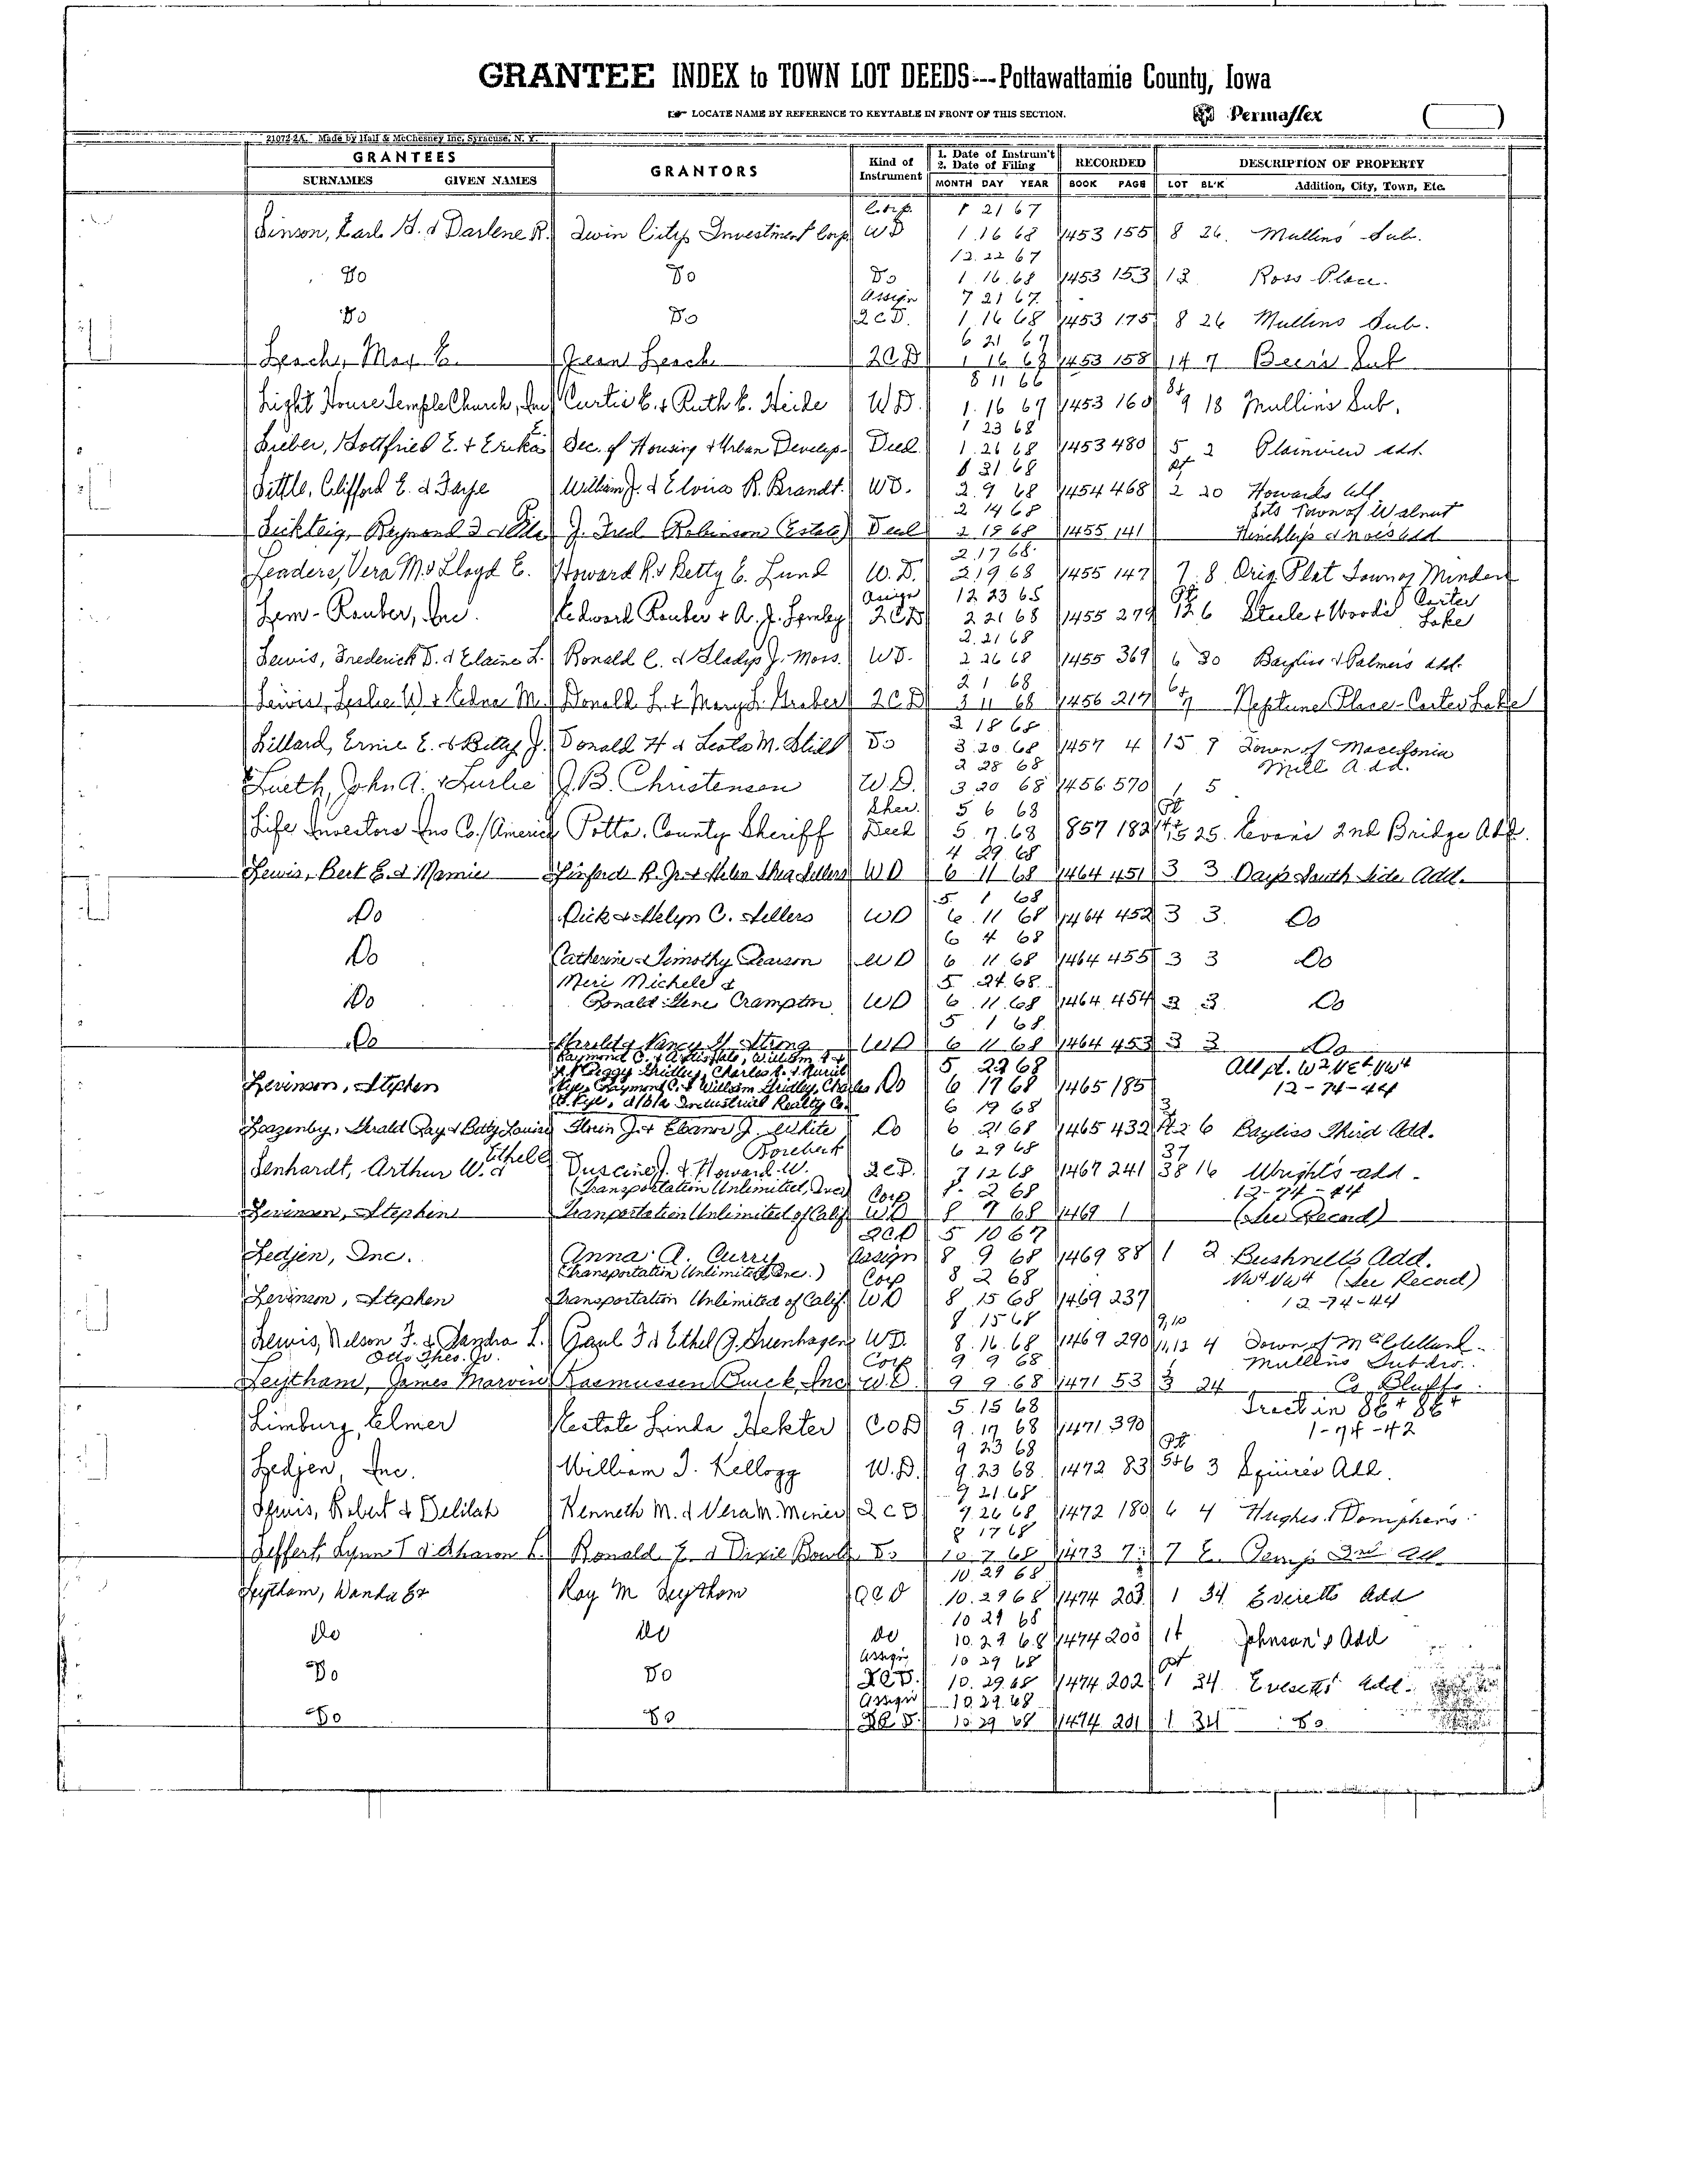 GRANTEE INDEX to TOWN LOT DEEDS---Pottawattamie County, Iowa
☞ LOCATE NAME BY REFERENCE TO KEYTABLE IN FRONT OF THIS SECTION.
Permaflex
21072-2A Made by Hall & McChesney Inc. Syracuse, N. Y.
GRANTEES GRANTORS Kind of Instrument 1. Date of Instrum't 2. Date of Filing RECORDED DESCRIPTION OF PROPERTY
SURNAMES GIVEN NAMES MONTH DAY YEAR BOOK PAGE LOT BL'K Addition, City, Town, Etc.
Corp. 8 21 67
Linson, Earl H. & Darlene R. Twin Citys Investment Corp WD 1 16 68 1453 155 8 26 Mullins Sub.
12 22 67
Do Do Do 1 16 68 1453 153 12 Ross Place.
Assign 7 21 67
Do Do 2CD. 1 16 68 1453 175 8 26 Mullins Sub.
6 21 67
Leach, May E. Jean Leach 2CD 1 16 68 1453 158 14 7 Beers Sub
8 11 66
Light House Temple Church, Inc Curtis E. & Ruth E. Heide WD. 1 16 67 1453 160 8+9 18 Mullins Sub.
1 23 68
Lieber, Gottfried E. & Erika Sec. of Housing & Urban Develop. Deed 1 26 68 1453 480 5 2 Plainview Add.
1 31 68 Pt
Little, Clifford E. & Faye William J. & Elvira R. Brandt. WD. 2 9 68 1454 468 2 20 Howards Add
2 14 68 Lots Town of Walnut
Lickteig, Raymond J. & J. Fred Robinson (Estate) Deed 2 15 68 1455 141 Hinchleys & Add
2 17 68
Leaders, Vera M. & Lloyd E. Howard R. & Betty E. Lund W.D. 2 19 68 1455 147 7 8 Orig. Plat Town of Minden
Assign 12 23 65 Pt Carter
Lem-Rauber, Inc. Edward Rauber & A. J. Lemley 2CD 2 21 68 1455 279 12 6 Steele & Wood's Lake
2 21 68
Lewis, Frederick D. & Elaine L. Ronald C. & Gladys J. Moss. WD. 2 26 68 1455 369 6 30 Bayliss & Palmers Add.
2 1 68
Lewis, Leslie W. & Edna M. Donald L. & Mary L. Graber 2CD 3 11 68 1456 217 6+7 Neptune Place-Carter Lake
3 18 68
Lillard, Ernie E. & Betty J. Donald H & Leota M. Still Do 3 20 68 1457 4 15 9 Town of Macedonia
2 28 68 Mill Add.
Lueth, John A. & Lurlie J.B. Christensen W.D. 3 20 68 1456 570 1 5
Sher. 5 6 68 Pt
Life Investors Ins Co./America Potta. County Sheriff Deed 5 7 68 857 182 25 Evans 2nd Bridge Add.
4 29 68
Lewis, Bert E. & Mamie WD 6 11 68 1464 451 3 3 Days South Side Add.
5 1 68
Do Dick & Melyn C. Sellers WD 6 11 68 1464 452 3 3 Do
6 4 68
Do Catherine & Timothy Pearson WD 6 11 68 1464 455 3 3 Do
Meri Michele & 5 24 68
Do Ronald Gene Crampton WD 6 11 68 1464 454 3 3 Do
5 1 68
Do Harold & Nancy M. Strong WD 6 11 68 1464 453 3 3 Do
5 29 68 All pt. W2 NE4 NW4
Levinson, Stephen Do 6 17 68 1465 185 12-74-44
B. Pyle, d/b/a Industrial Realty Co. 6 19 68 3
Lazenby, Gerald Ray & Betty Louise J. & Eleanor J. White Do 6 21 68 1465 432 6 Bayliss Third Add.
Ethel Borchert 6 29 68 37
Lenhardt, Arthur W. & J. & Howard W. 2CD. 7 12 68 1467 241 38 16 Wright's Add.
(Transportation Unlimited, Inc) Corp 8 2 68 12-74-44
Levinson, Stephen Transportation Unlimited of Calif WD 8 9 68 1469 1 (See Record)
2CD 5 10 67
Ledjen, Inc. Anna A. Curry Assign 8 9 68 1469 88 1 2 Bushnell's Add.
(Transportation Unlimited, Inc.) Corp 8 2 68 NW4 NW4 (See Record)
Levinson, Stephen Transportation Unlimited of Calif. WD 8 15 68 1469 237 12-74-44
8 15 68 9,10
Lewis, Nelson J. & Sandra L. Paul F. & Ethel G. Gruenhagen WD. 8 16 68 1469 290 11,12 4 Town of McClelland
Otto Theo. Jr. Corp 9 9 68 Mullins Subdiv.
Leytham, James Marvin Rasmussen Buick, Inc W.D. 9 9 68 1471 53 3 24 Co. Bluffs
5 15 68 Tract in SE4 SE4
Limburg, Elmer Estate Linda Hekter COD 9 17 68 1471 390 1-74-42
9 23 68 Pt
Ledjen, Inc. William J. Kellogg W.D. 9 23 68 1472 83 5+6 3 Squires Add.
9 21 68
Lewis, Robert & Delilah Kenneth M. & Vera M. Minier 2CD 9 26 68 1472 180 6 4 Hughes & Doniphans
8 17 68
Leffert, Lynn T. & Sharon L. Ronald J. & Dixie Do 10 7 68 1473 7 7 Add
10 29 68
Leytham, Wanda Roy M Leytham QCD 10 29 68 1474 203 1 34 Everetts Add
10 29 68
Do Do Do 10 29 68 1474 200 14 Johnson's Add
Assign 10 29 68 Pt
Do Do 2CD. 10 29 68 1474 202 1 34 Everetts Add.
Assign 10 29 68
Do Do 2CD. 10 29 68 1474 201 1 34 Do